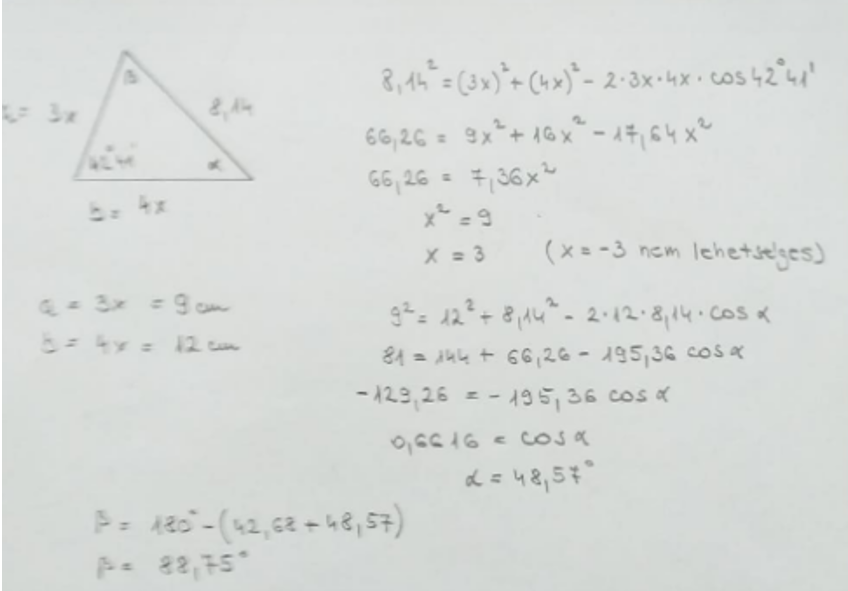 β
a = 3x
8,14
42°41'
α
b = 4x
8,14² = (3x)² + (4x)² - 2·3x·4x·cos 42°41'
66,26 = 9x² + 16x² - 17,64x²
66,26 = 7,36x²
x² = 9
x = 3 (x = -3 nem lehetséges)
a = 3x = 9 cm
b = 4x = 12 cm
9² = 12² + 8,14² - 2·12·8,14·cos α
81 = 144 + 66,26 - 195,36 cos α
-129,26 = -195,36 cos α
0,6616 = cos α
α = 48,57°
β = 180° - (42,68 + 48,57)
β = 88,75°